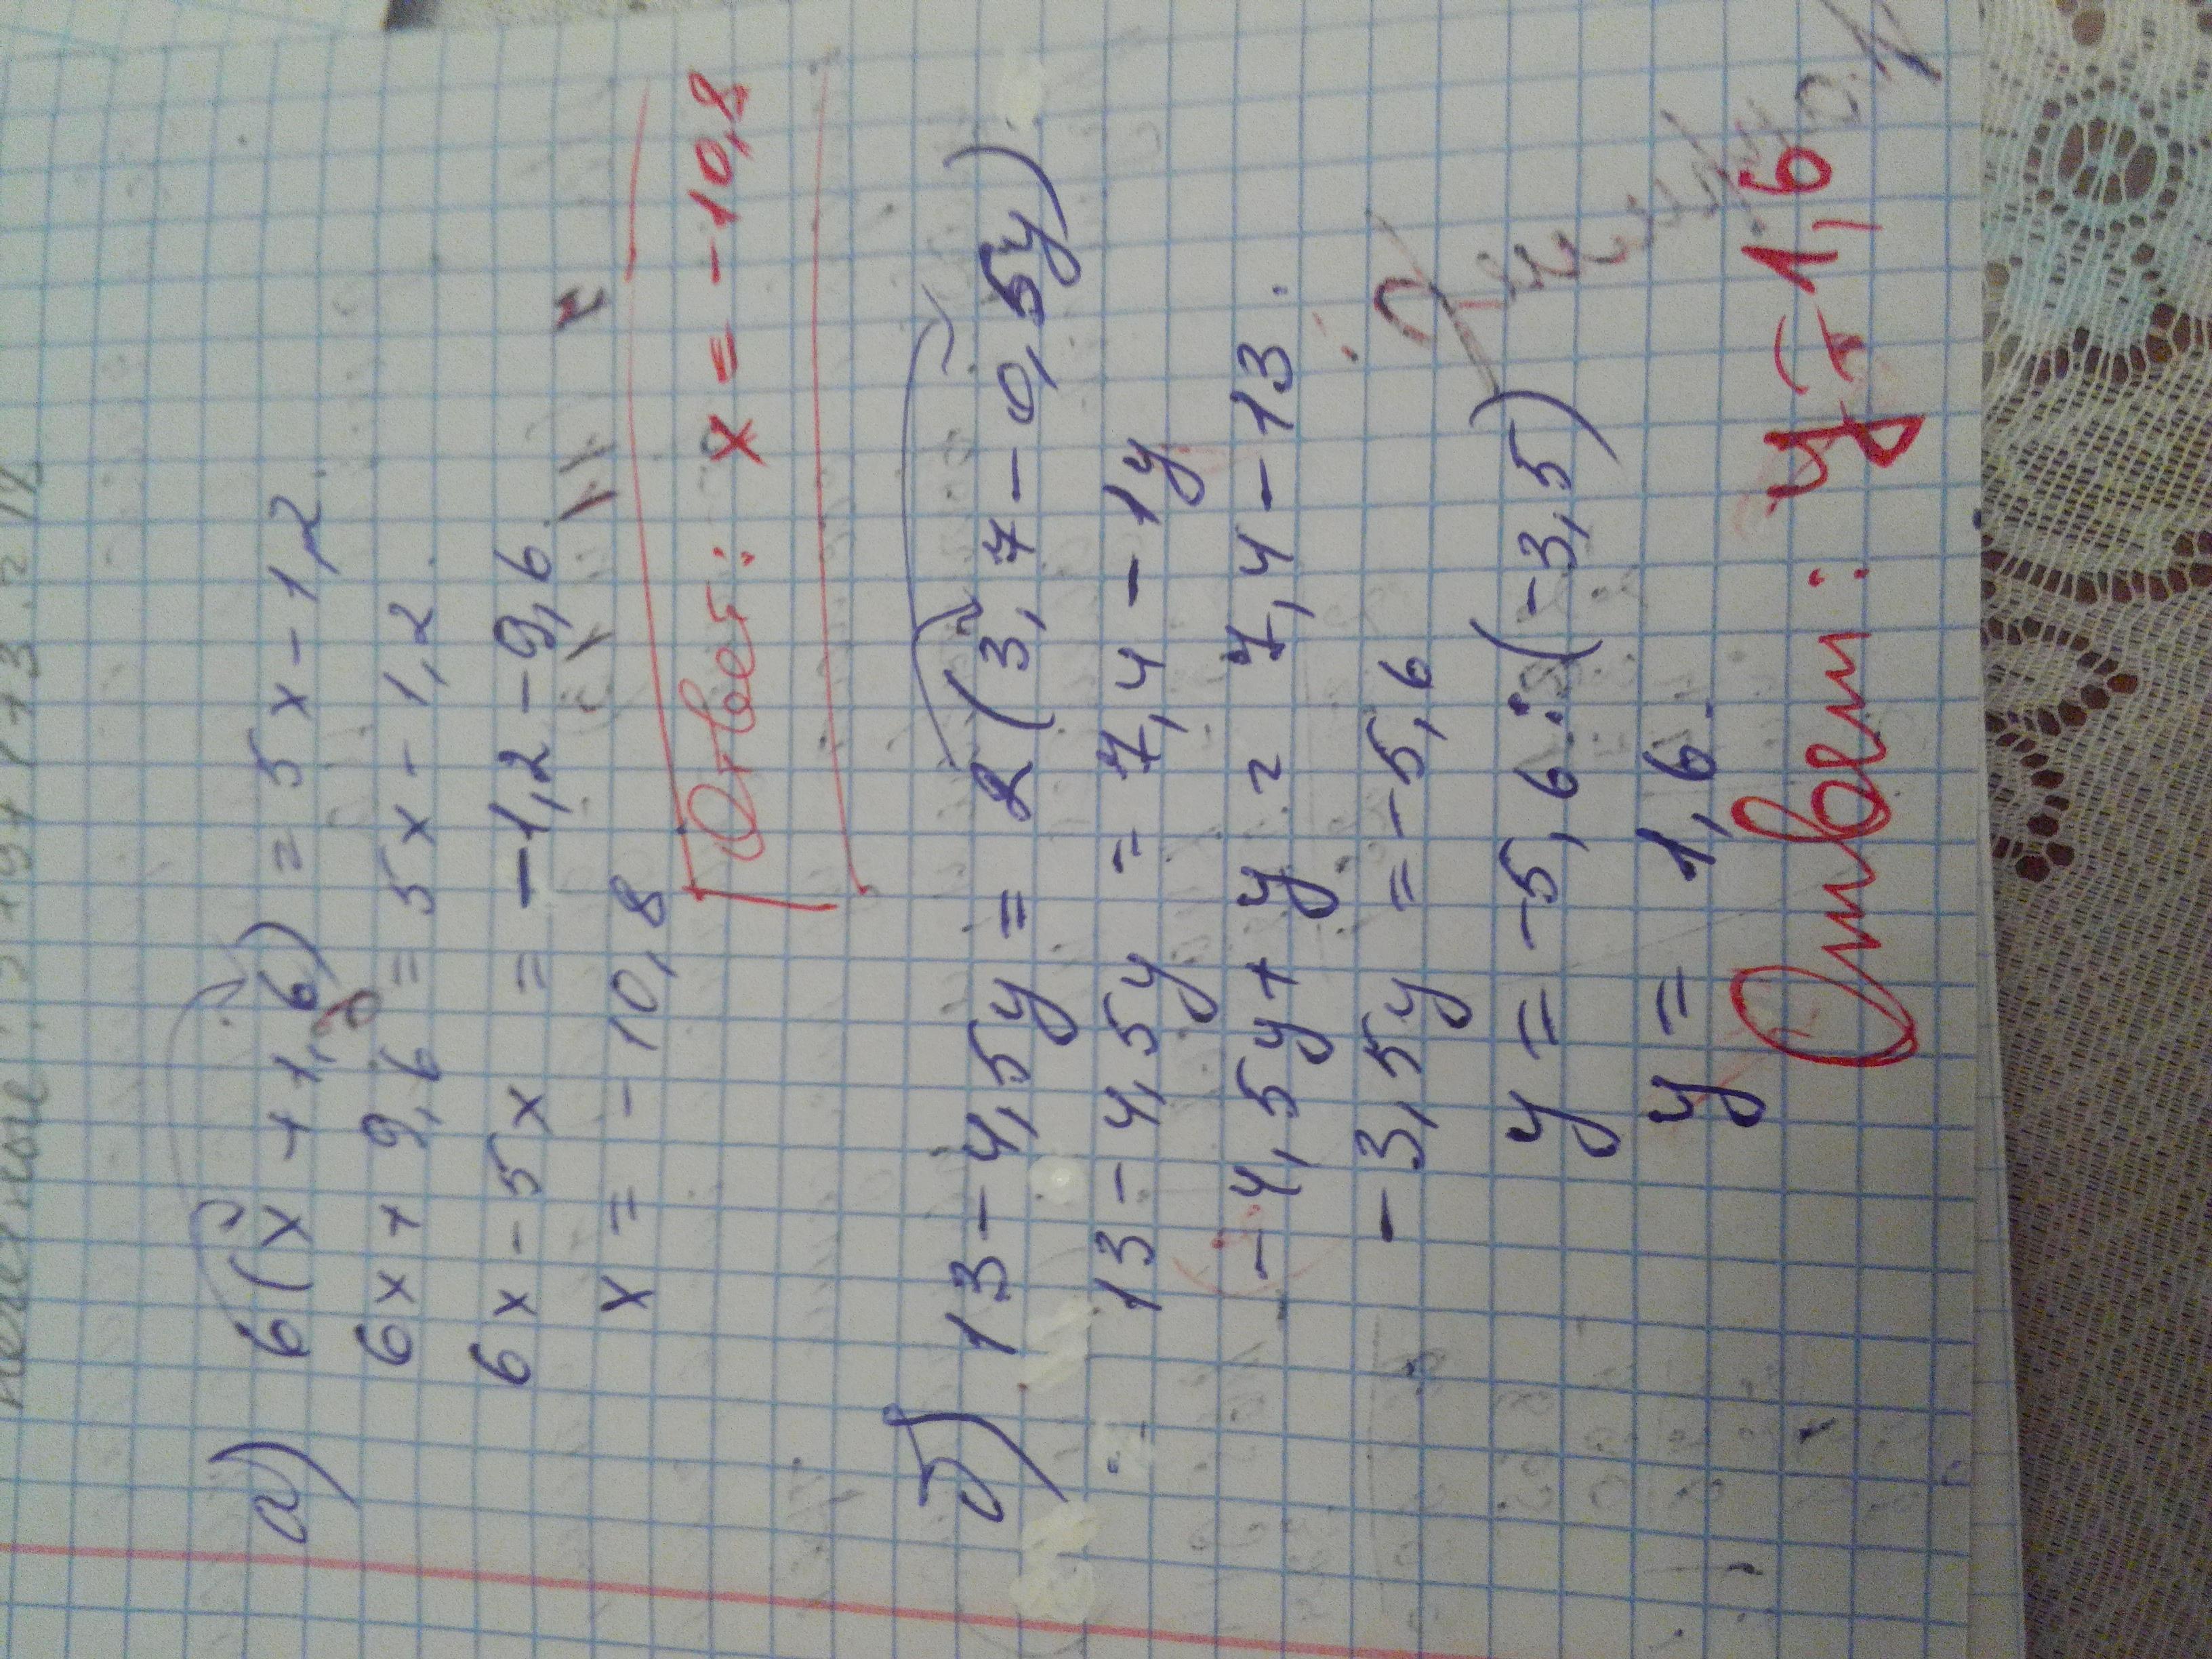 а) 6(x+1,6) = 5x-1,2.
6x+9,6 = 5x-1,2.
6x-5x = -1,2-9,6.
x = -10,8
Ответ: x = -10,8
б) 13-4,5y = 2(3,7-0,5y)
13-4,5y = 7,4-1y
-4,5y+y = 7,4-13.
-3,5y = -5,6
y = -5,6:(-3,5)
y = 1,6.
Ответ: y=1,6